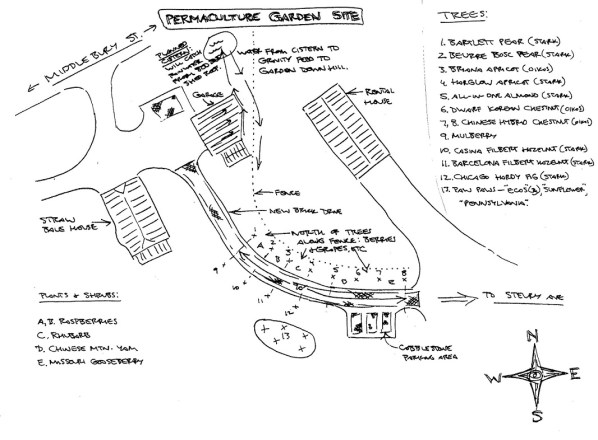 PERMACULTURE GARDEN SITE
MIDDLEBURY ST.
PLANNED
CISTERN:
WILL CATCH
RAINWATER
FROM
SHED ROOF.
WATER FROM CISTERN TO
GRAVITY FEED TO
GARDEN DOWN HILL.
GARAGE
RENTAL
HOUSE
FENCE
NEW BRICK DRIVE
STRAW
BALE HOUSE
NORTH OF TREES
ALONG FENCE: BERRIES
+ GRAPES, ETC
1
A
2
B
3
C
4
5
D
6
7
E
8
9
10
11
12
13
TO STEURY AVE
COBBLESTONE
PARKING AREA
TREES:
1. BARTLETT PEAR (STARK)
2. BEURRE BOSC PEAR (STARK)
3. BRIANA APRICOT (OIKOS)
4. HARGLOW APRICOT (STARK)
5. ALL-IN-ONE ALMOND (STARK)
6. DWARF KOREAN CHESTNUT (OIKOS)
7, 8. CHINESE HYBRID CHESTNUT (OIKOS)
9. MULBERRY
10. CASINA FILBERT HAZELNUT (STARK)
11. BARCELONA FILBERT HAZELNUT (STARK)
12. CHICAGO HARDY FIG (STARK)
13. PAW PAWS - "SUNFLOWER",
"PENNSYLVANIA".
PLANTS & SHRUBS:
A, B. RASPBERRIES
C. RHUBARB
D. CHINESE MTN. YAM
E. MISSOURI GOOSEBERRY
N
W
E
S